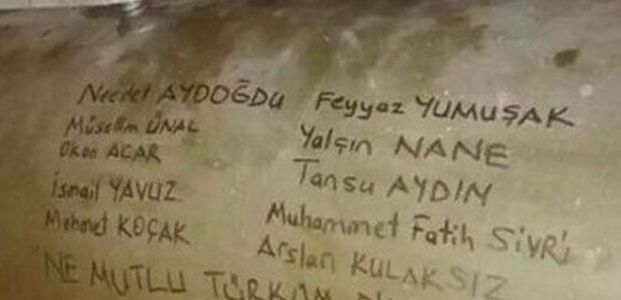 Necdet AYDOĞDU
Müsellim ÜNAL
Okan ACAR
İsmail YAVUZ
Mehmet KOÇAK
Feyyaz YUMUŞAK
Yalçın NANE
Tansu AYDIN
Muhammet Fatih SİVRİ
Arslan KULAKSIZ
NE MUTLU TÜRKÜM